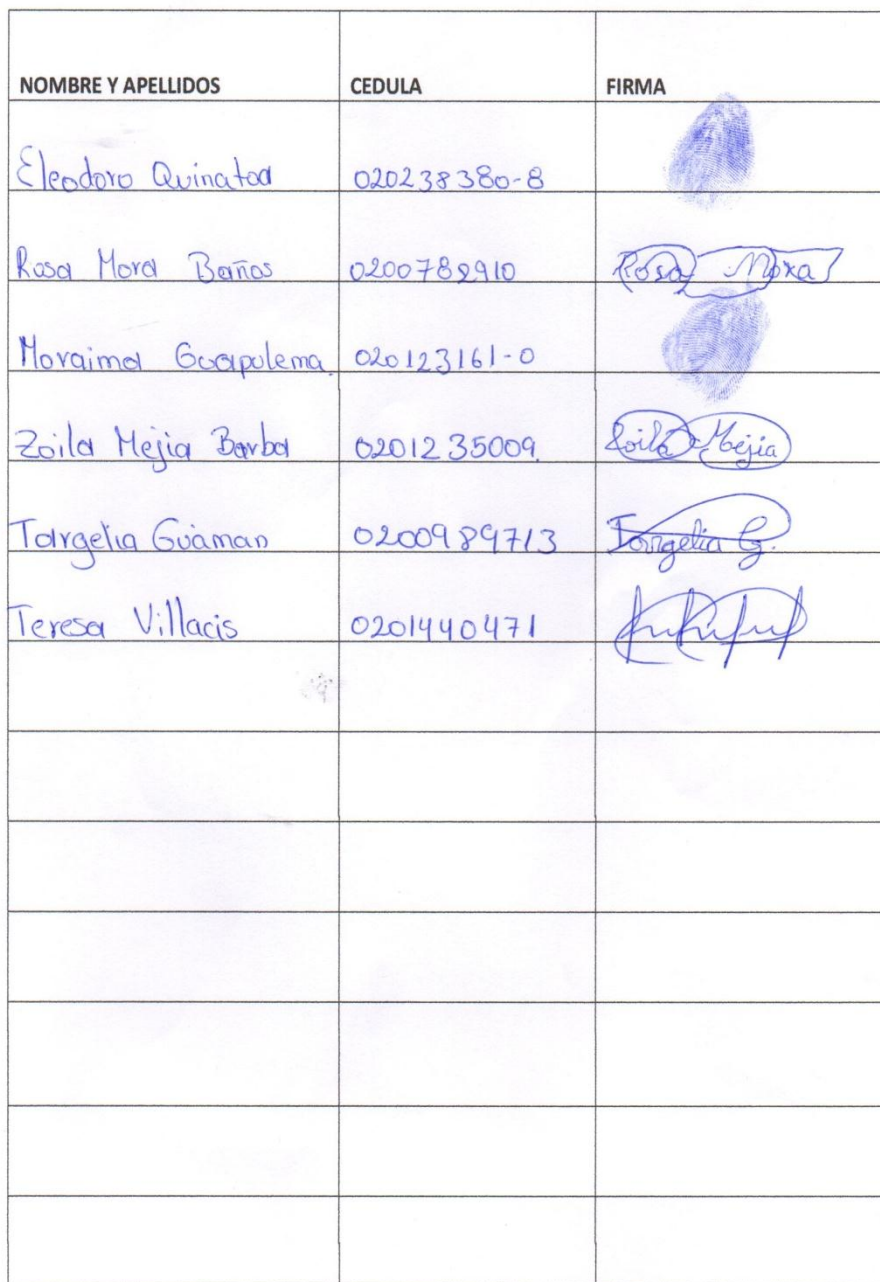 NOMBRE Y APELLIDOS CEDULA FIRMA
Eleodoro Quinatoa 020238380-8
Rosa Mora Baños 0200782910 Rosa Mora
Moraima Guapulema. 020123161-0
Zoila Mejia Barba 0201235009. Zoila Mejia
Targelia Guaman 0200989713 Targelia G.
Teresa Villacis 0201440471